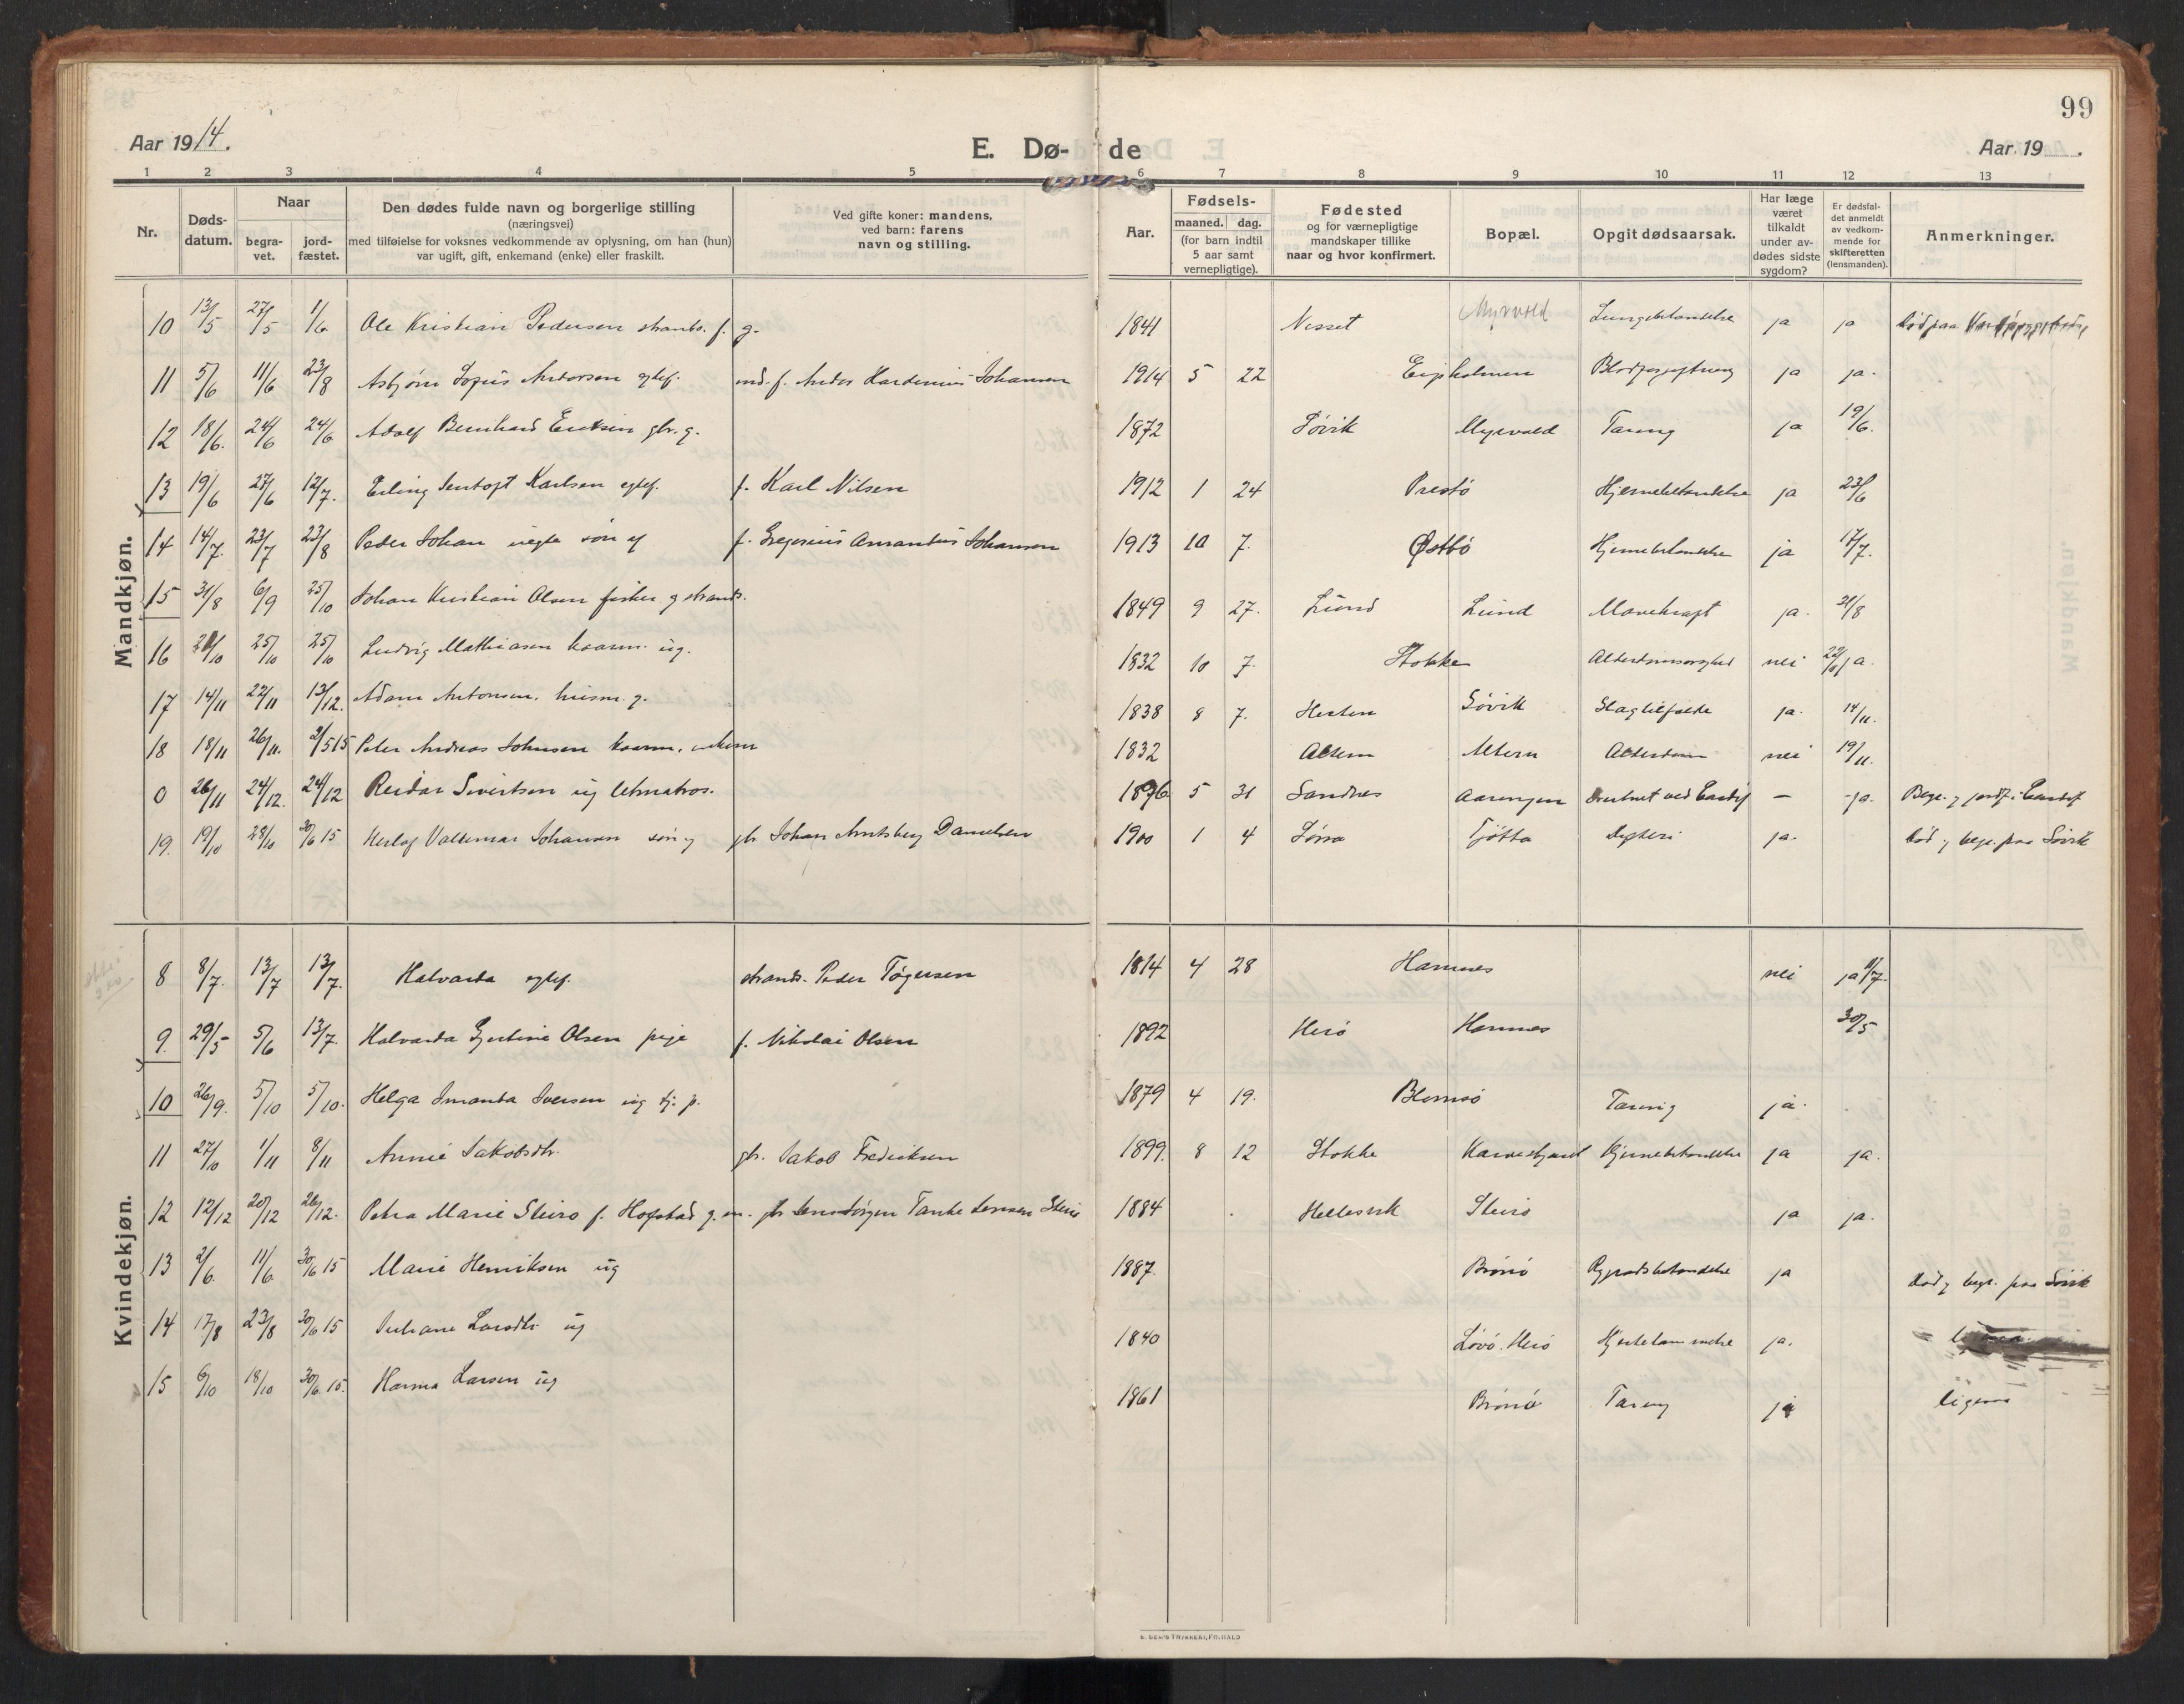 99
Aar 1914.
E. Dø-de
Aar 19 .
1 2 3 4 5 6 7 8 9 10 11 12 13
Nr.
Døds-
datum.
Naar
begra-
vet.
jord-
fæstet.
Den dødes fulde navn og borgerlige stilling
(næringsvei)
med tilføielse for voksnes vedkommende av oplysning, om han (hun)
var ugift, gift, enkemand (enke) eller fraskilt.
Ved gifte koner: mandens,
ved barn: farens
navn og stilling.
Aar.
Fødsels-
maaned. dag.
(for barn indtil
5 aar samt
vernepligtige).
Fødested
og for værnepligtige
mandskaper tillike
naar og hvor konfirmert.
Bopæl.
Opgit dødsaarsak.
Har læge
været
tilkaldt
under av-
dødes sidste
sygdom?
Er dødsfal-
det anmeldt
av vedkom-
mende for
skifteretten
(lensmanden).
Anmerkninger.
Mandkjøn.
10 13/5 27/5 1/6 Ole Kristian Pedersen strands. f. g. 1841 Nesset Myrvold Lungebetændelse ja ja Død paa
11 5/6 11/6 23/8 Asbjørn Sofus Andersen egtef. ind. f. Anders Hardenius Johansen 1914 5 22 Blodforgiftning ja ja.
12 18/6. 24/6 24/6 Adolf Bernhard Eriksen gbr. g. 1872 Søvik Myrvold Tæring ja 19/6.
13 19/6 27/6 12/7. Erling Karlsen egtef. f. Karl Nilsen 1912 1 24 Prestø Hjernebetændelse ja 23/6
14 14/7. 23/7 23/8 Peder Johan uegte søn af f. Gregorius Amandus Johansen 1913 10 7. Østbø Hjernebetændelse ja 17/7.
15 31/8 6/9 25/10 Johan Kristian Olsen fisker g strands. 1849 9 27. Lund Lund Mavekræft ja. 31/8
16 21/10 25/10 25/10 Ludvig Mathiasen kaarm. ug. 1832 10 7. Stokke nei 22/10 ja.
17 14/11 22/11 13/12. Adam Antonsen. husm. g. 1838 8 7. Hesten Søvik Slagtilfælde ja. 14/11.
18 18/11 26/11. 2/5 15 Peter Andreas Johnsen kaarm. enkem 1832 Altern Altern Alderdom nei 19/11.
0 26/11 24/12. 24/12 Reidar Sivertsen ug letmatros. 1896 5 31 Sandnes Druknet ved Cardif — ja. Begr. g jordf. i Cardif
19. 19/10 28/10 30/6 15 Herlof Valdemar Johansen søn g gbr Johan Arntsberg Danielsen 1900 1 4 Tjøtta Dyfteri ja. Død g begr. paa Søvik
Kvindekjøn.
8 8/7. 13/7 13/7. Halvarda egtef. strands. Peder Tøgersen 1814 4 28 Hamnes nei ja 11/7.
9. 29/5 5/6 13/7. Halvarda Gjertine Olsen pige f. Nikolai Olsen 1892 Herø Hamnes 30/5
10 26/9. 5/10 5/10. Helga Amanda Iversen ug tj. p. 1879 4 19. Blomsø Tæring ja.
11 27/10 1/11 8/11 Annie Jakobsdtr. gbr. Jakob Fredriksen 1899. 8 12 Stokke Hjernebetændelse ja ja.
12 12/12 20/12 26/12. Petra Marie Steiro f. Hofstad g. m. gbr Jens Jørgen Tanke Jensen Steiro 1884 Hellesvik Steiro ja ja.
13 2/6. 11/6 30/6 15 Marie Henriksen ug 1887. Brønø Rygradsbetændelse ja Død g begr. paa Søvik
14 17/8 23/8 30/6 15 Juliane Larsdtr ug 1840 Løvø. Herø Hjertelammelse ja.
15 6/10 18/10 30/6 15. Hanna Larsen ug 1861 Brønø Tæring ja ligesaa